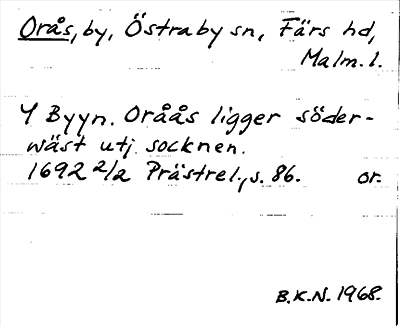 Orås, by, Östraby sn, Färs hd,
Malm. l.
Y Byyn. Oråås ligger söder-
wäst utj socknen.
1692 2/2 Prästrel., s. 86. or.
B.K.N. 1968.